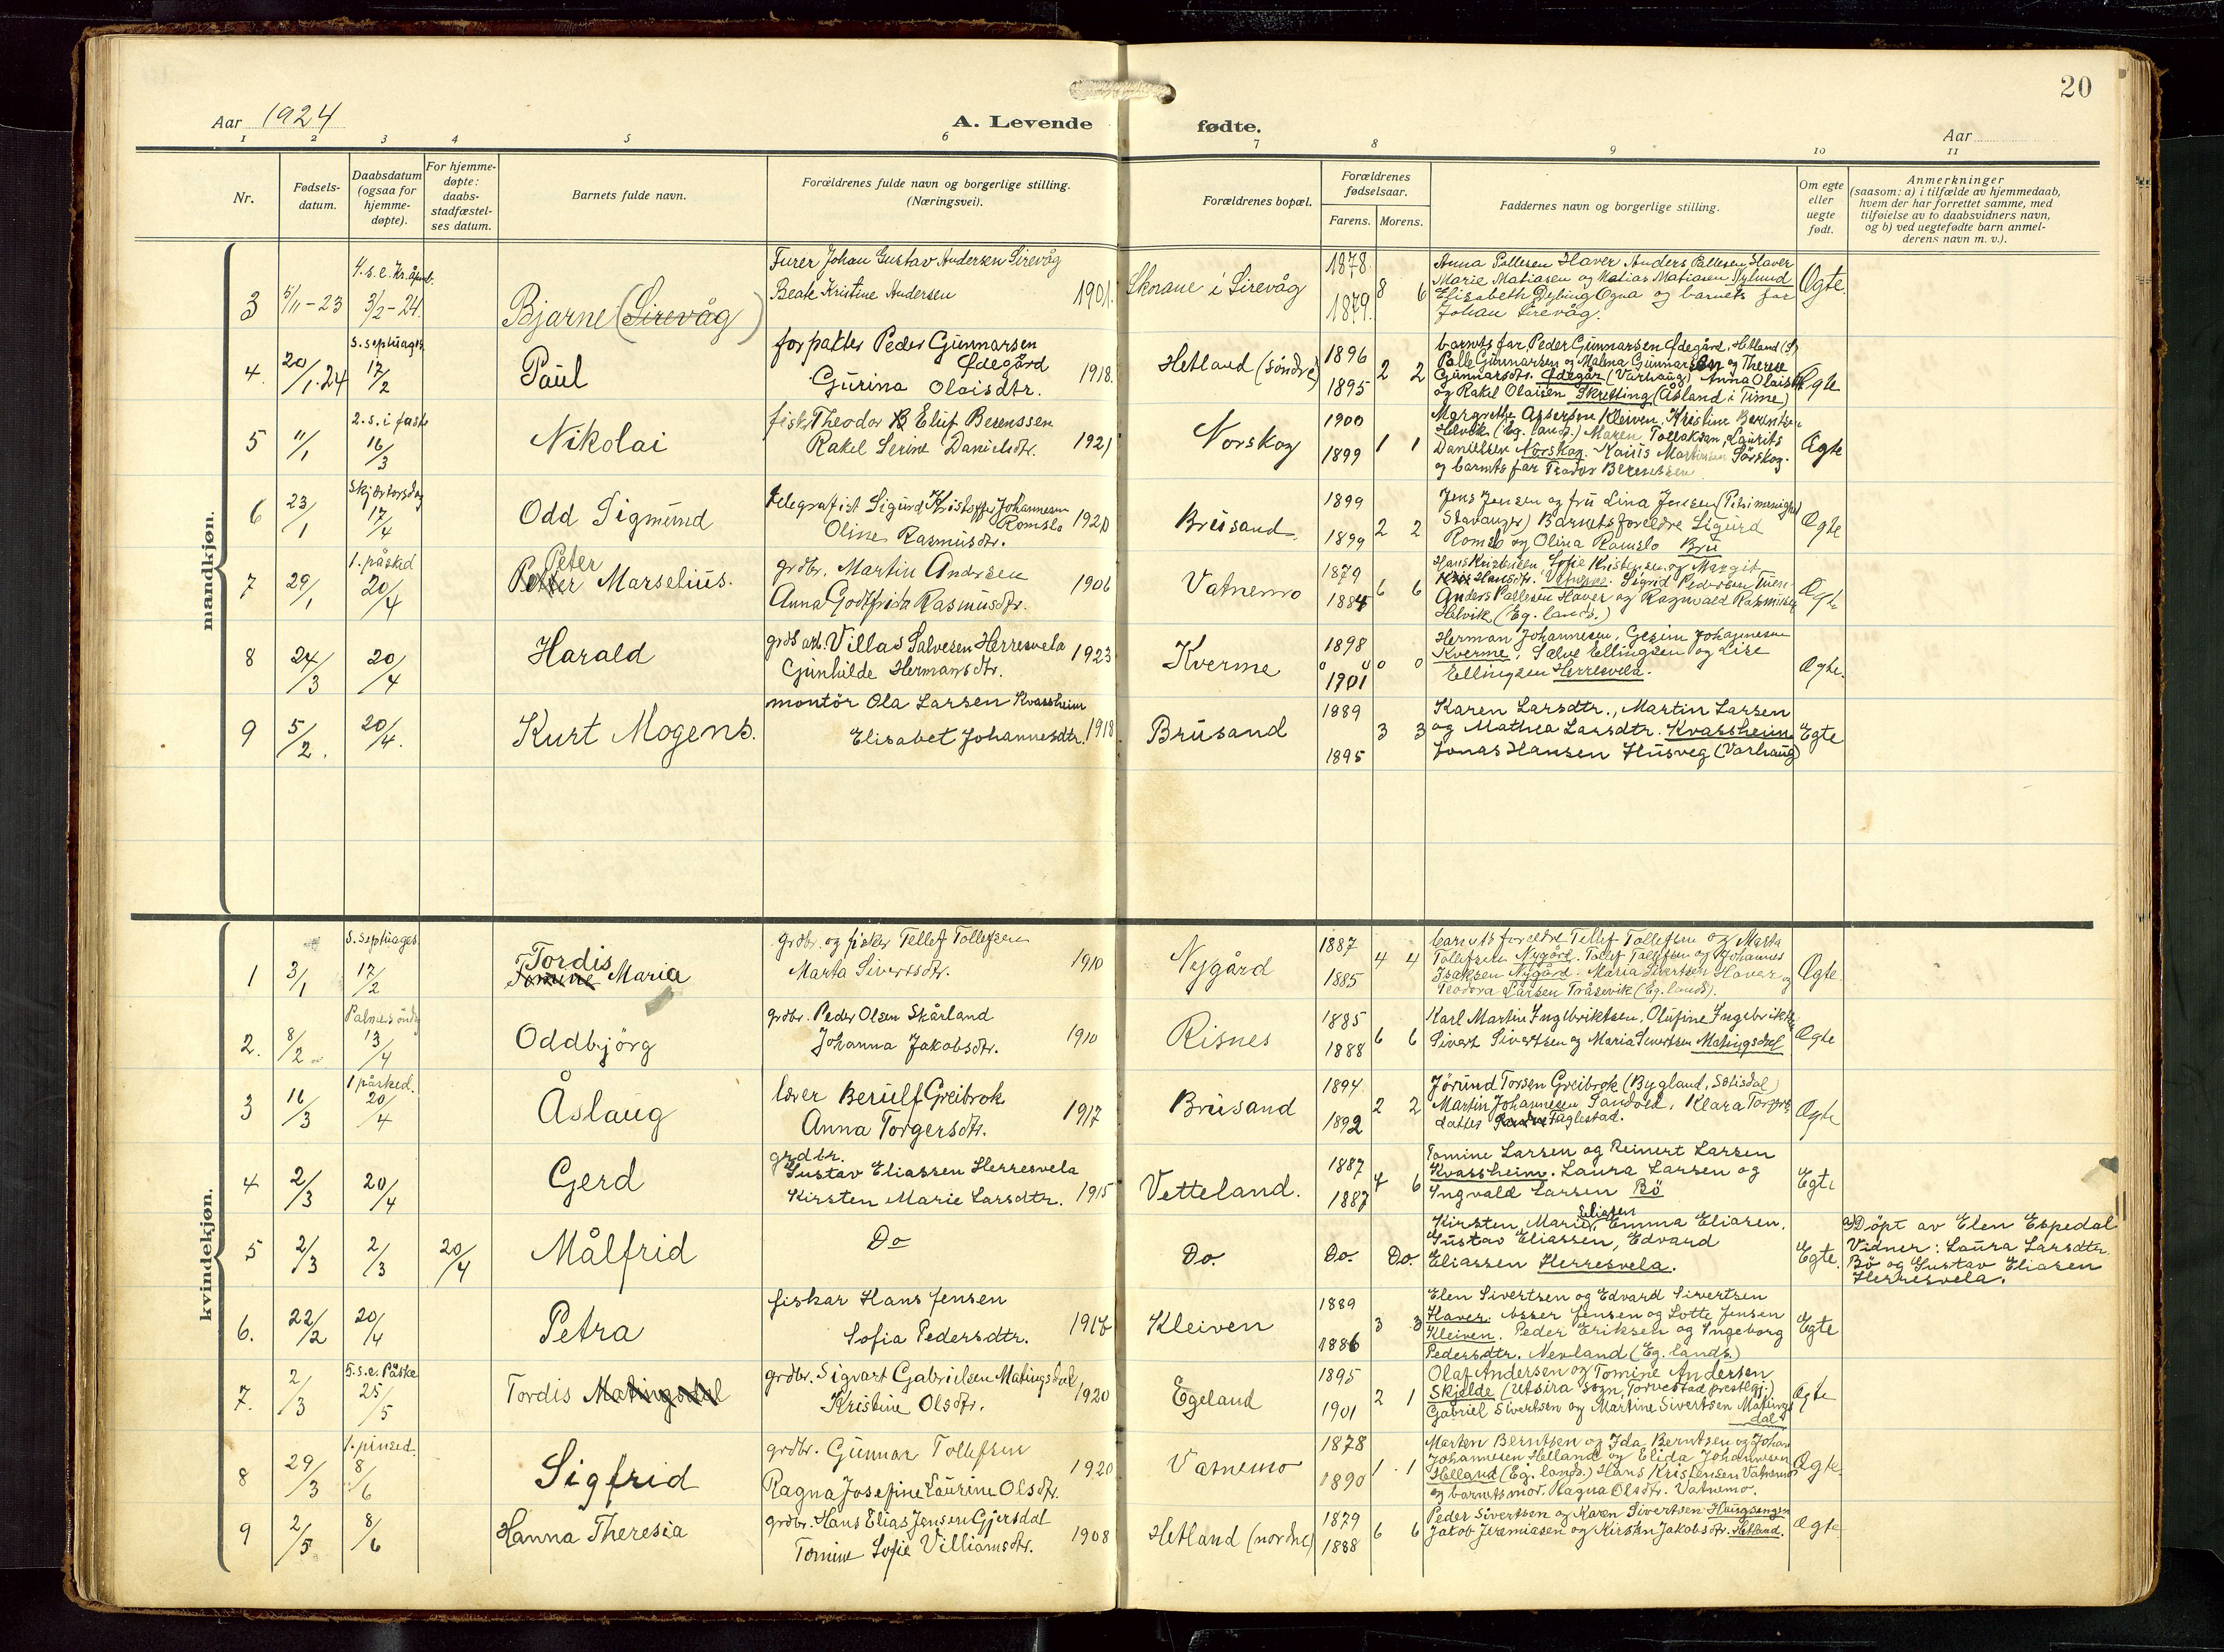 20
Aar 1924
A. Levende fødte.
Aar
1 2 3 4 5 6 7 8 9 10 11
Nr.
Fødsels-
datum.
Daabsdatum
(ogsaa for
hjemme-
døpte).
For hjemme-
døpte:
daabs-
stadfæstel-
ses datum.
Barnets fulde navn.
Forældrenes fulde navn og borgerlige stilling.
(Næringsvei).
Forældrenes bopæl.
Forældrenes
fødselsaar.
Farens. Morens.
Faddernes navn og borgerlige stilling.
Om egte
eller
uegte
født.
Anmerkninger
(saasom: a) i tilfælde av hjemmedaab,
hvem der har forrettet samme, med
tilføielse av to daabsvidners navn,
og b) ved uegtefødte barn anmel-
derens navn m. v.).
mandkjøn.
3 5/11-23 4.s.e.Kr.åpenb. 3/2-24. Bjarne (Sirevåg)
Furer Johan Gustav Andersen Sirevåg
Beate Kristine Andersen 1901.
Skorane i Sirevåg 1878 1879. 8 6
Anna Pallesen Haver Anders Pallesen Haver
Marie Matiasen og Matias Matiasen Nylund
Elisabeth Dybing Ogna og barnets far
Johan Sirevåg.
Ægte.
4. 20/1.24 S.septuages. 17/2 Paul
forpakter Peder Gunnarsen
Ødegård
Gurina Olaisdtr. 1918.
Hetland (søndre) 1896 1895 2 2
barnets far Peder Gunnarsen Ødegård, Hetland (S)
Palle Gunnarsen og Malena Gunnarsen og Therese
Gunnarsdtr. Ødegår (Varhaug) Anna Olaisdtr
og Rakel Olaisen Skretting (Åsland i Time)
Ægte
5 11/1 2.s.i faste 16/3 Nikolai
fisk. Theodor B Eluf Berenssen
Rakel Serine Danielsdtr. 1921
Norskog 1900 1899 1 1
Margrethe Assersen Kleiven, Kristine Berentsen
Helvik (Eg. lands.) Maren Tollaksen, Laurits
Danielsen Norskog. Martinsen Sørskog.
og barnets far Teodor Berentsen
Ægte
6 23/1 Skjærtorsdag 17/4 Odd Sigmund
telegrafist Sigurd Kristoffer Johannesen
Romslo
Oline Rasmusdtr. 1920
Brusand. 1899 1899 2 2
Jens Jensen og fru Lina Jensen (Petri menighed
Stavanger) Barnets foreldre Sigurd
Romslo og Olina Romslo Bru
Ægte
7 29/1 1.påsked 20/4 Peter Marselius.
grdbr. Martin Andrsen
Anna Godtfrida Rasmusdtr. 1906
Vatnemo 1879 1884 6 6
Hans Kristensen Sofie Kristensen og Margit
Hansdtr. Vatnemo. Sigrid Pedersen Tuen
Anders Pallesen Haver og Ragnvald Rasmussen
Helvik (Eg. lands.)
Ægte
8 24/3 20/4 Harald
grdb arb. Villas Salvesen Herresvela
Gunhilde Hermansdtr. 1923
Kverme 1898 1901 0 0
Herman Johannesen, Gesine Johannesen
Kverme, Salve Ellingsen og Lise
Ellingsen Herresvela.
Ægte.
9 5/2. 20/4. Kurt Mogens.
montör Ola Larsen Kvassheim
Elisabet Johannesdtr. 1918
Brusand 1889 1895 3 3
Karen Larsdtr., Martin Larsen
og Mathea Larsdtr. Kvassheim
Jonas Hansen Husveg (Varhaug)
Egte
kvindekjøn.
1 3/1 S.septuages. 17/2 Tordis
Tomine Maria
grdbr. og fisker Tellef Tollefsen
Marta Sivertsdtr. 1910
Nygård 1887 1885 4 4
barnets foreldre Tellef Tollefsen og Marta
Tollefsen Nygård. Tollef Tollefsen og Johannes
Isaksen Nygård. Maria Sivertsen Haver og
Teodora Larsen Tråsevik (Eg. lands).
Ægte
2. 8/2 Palmesønd 13/4 Oddbjörg
grdbr. Peder Olsen Skårland
Johanna Jakobsdtr. 1910
Risnes 1885 1888 6 6
Karl Martin Ingebriktsen, Olufine Ingebriktsen
Sivert Sivertsen og Maria Sivertsen Matingsdal
Ægte
3 16/3 1 påsked. 20/4 Åslaug
lærer Berulf Greibrok
Anna Torgersdtr. 1917
Brusand 1894 1892 2 2
Jörund Torsen Greibrok (Bygland, Setisdal)
Martin Johannesen Sandvold, Klara Torgers
datter Faglestad.
Ægte
4 2/3 20/4 Gerd
grdbr.
Gustav Eliassen Herresvela
Kirsten Marie Larsdtr. 1915
Vetteland. 1887 1887 4 6
Tomine Larsen og Reinert Larsen
Kvassheim. Laura Larsen og
Ingvald Larsen Bö
Egte
5 2/3 2/3 20/4 Målfrid
Do
Do. Do. Do.
Kirsten Marie Eliasen Emma Eliasen.
Gustav Eliassen, Edvard
Eliassen Herresvela.
Egte.
a) Döpt av Elen Espedal
Vidner: Laura Larsdtr.
Bö og Gustav Eliasen
Herresvela.
6. 22/2 20/4 Petra
fiskar Hans Jensen
Sofia Pedersdtr. 1916
Kleiven 1889 1886 3 3
Elen Sivertsen og Edvard Sivertsen
Haver. Asser Jensen og Lotte Jensen
Kleiven. Peder Eriksen og Ingeborg
Pedersdtr. Nevland (Eg. lands.)
Egte
7. 2/3 5.s.e.Påske 25/5 Tordis Matingsdal
grdbr. Sigvart Gabrielsen Matingsdal
Kristine Olsdtr. 1920
Egeland 1895 1901 2 1
Olaf Andersen og Tomine Andersen
Skjelde (Utsira sogn, Torvestad prestegj.)
Gabriel Sivertsen og Martine Sivertsen Matings
dal
Ægte
8 29/3 1.pinsed. 8/6 Sigfrid
grdbr. Gunnar Tollefsen
Ragna Josefine Laurine Olsdtr. 1920
Vatnemo 1878 1890 1 1
Marten Berntsen og Ida Berntsen og Johan
Johannesen Helland og Elida Johannesen
Helland (Eg. lands.) Hans Kristensen Vatnemo
og barnets mor. Ragna Olsdtr. Vatnemo.
Ægte.
9 2/5 8/6 Hanna Theresia
grdbr. Hans Elias Jensen Gjersdal
Tomine Sofie Villiamsdtr. 1908
Hetland (nordre) 1879 1888 6 6
Peder Sivertsen og Karen Sivertsen Haugsengen
Jakob Jeremiasen og Kirsten Jakobsdtr. Hetland.
Ægte.